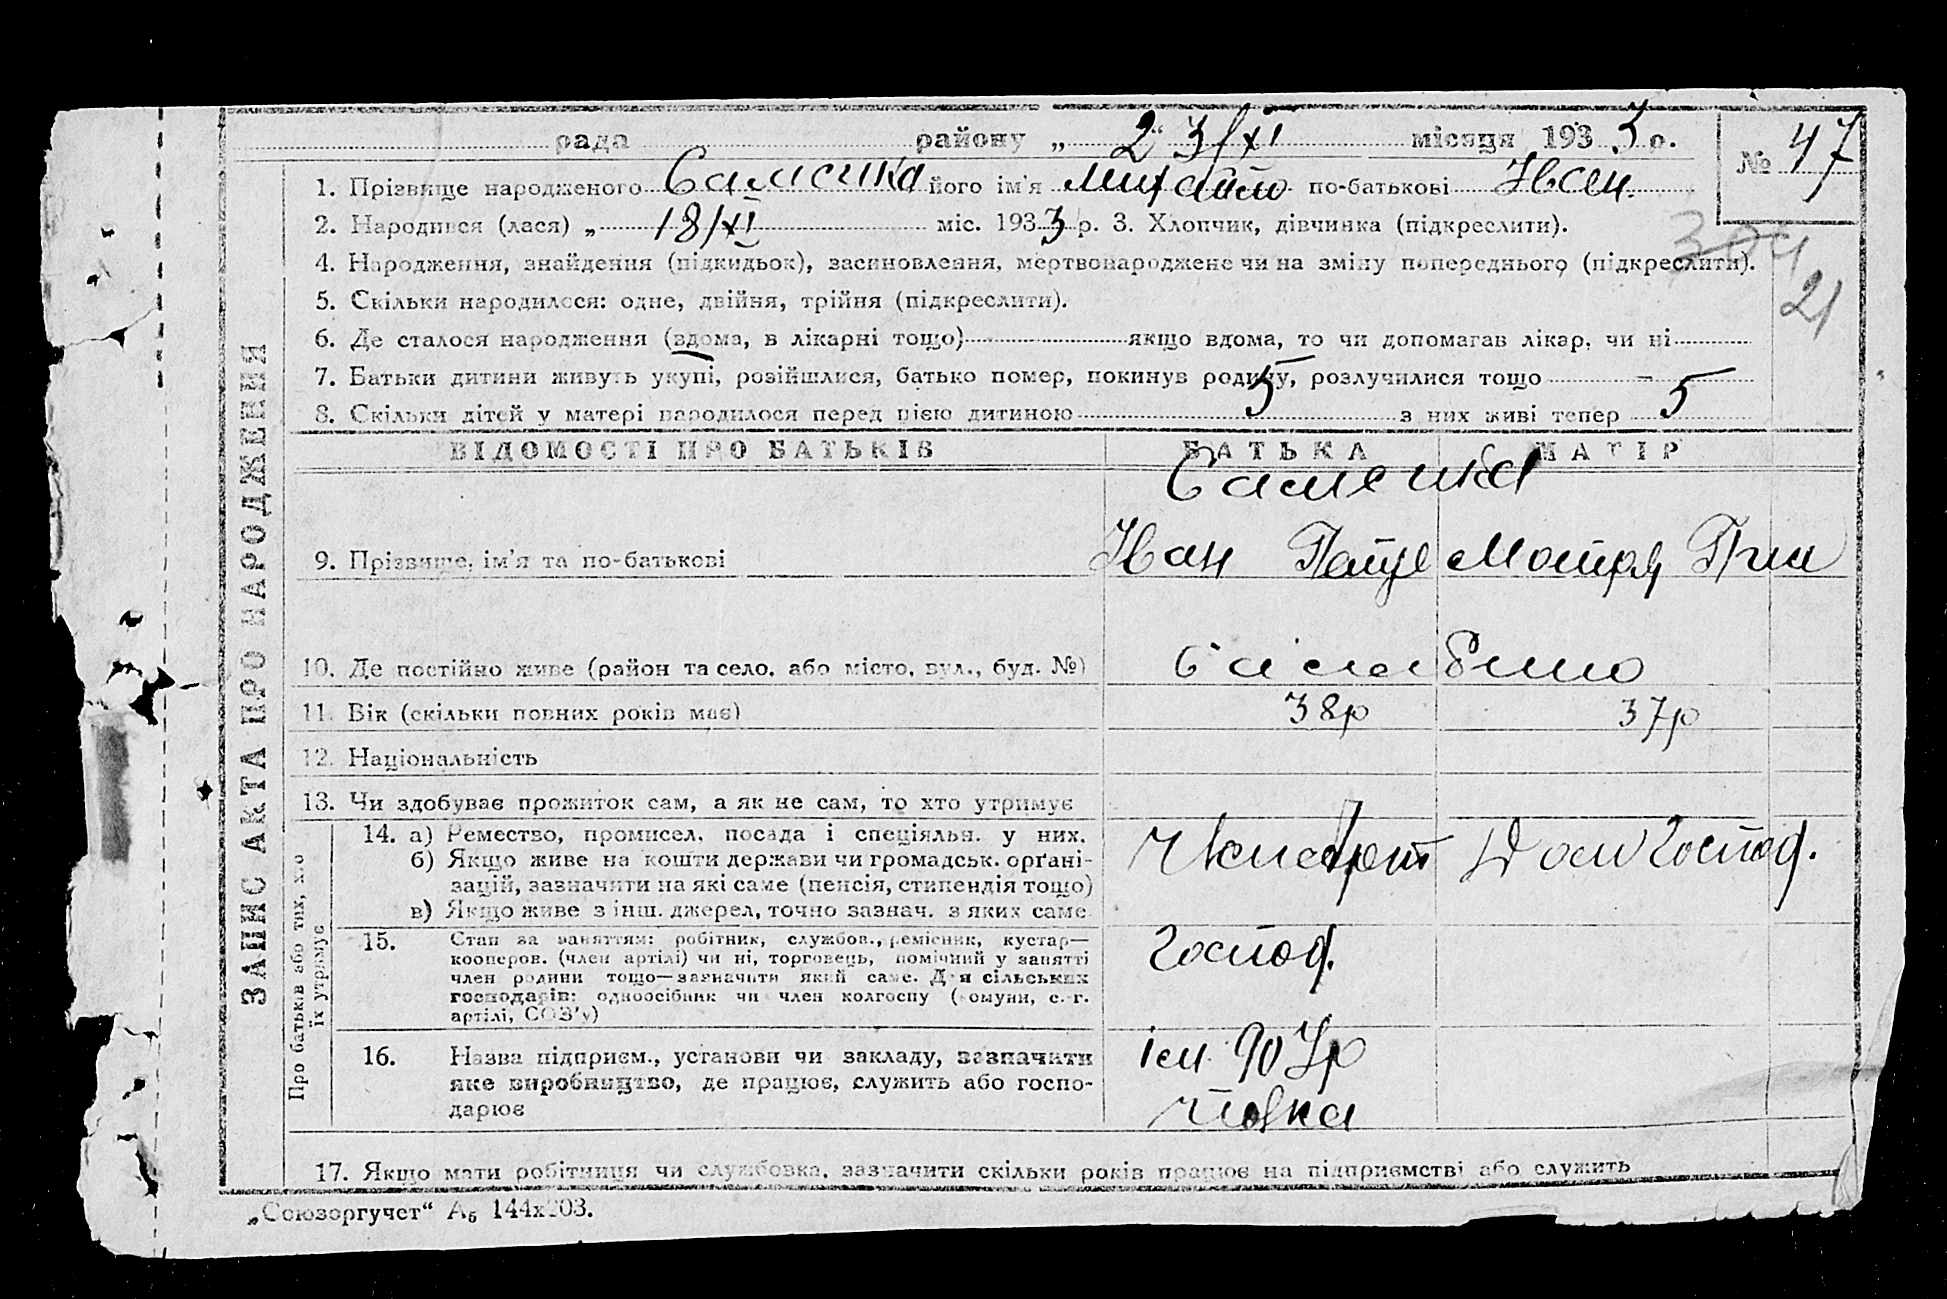 рада району „ 23/XI місяця 1933 р.
№ 47
1. Прізвище народженого його ім'я Михайло по-батькові Іван.
2. Народився (лася) „ 18/XI міс. 1933 р. 3. Хлопчик, дівчинка (підкреслити).
304
4. Народження, знайдення (підкидьок), засиновлення, мертвонароджене чи на зміну попереднього (підкреслити).
21
5. Скільки народилося: одне, двійня, трійня (підкреслити).
6. Де сталося народження (вдома, в лікарні тощо) якщо вдома, то чи допомагав лікар, чи ні
7. Батьки дитини живуть укупі, розійшлися, батько помер, покинув родину, розлучилися тощо –
8. Скільки дітей у матері народилося перед цією дитиною 5 з них живі тепер 5
ЗАПИС АКТА ПРО НАРОДЖЕННЯ
ВІДОМОСТІ ПРО БАТЬКІВ БАТЬКА МАТІР
9. Прізвище, ім'я та по-батькові Іван Петр Мотря
10. Де постійно живе (район та село, або місто, вул., буд. №)
11. Вік (скільки повних років має) 38р 37р
12. Національність
13. Чи здобуває прожиток сам, а як не сам, то хто утримує
Про батьків або тих, хто їх утримує
14. а) Ремество, промисел, посада і спеціяльн. у них.
б) Якщо живе на кошти держави чи громадськ. орґані-
зацій, зазначити на які саме (пенсія, стипендія тощо)
в) Якщо живе з інш. джерел, точно зазнач. з яких саме
Домгоспод.
15. Стан за заняттям: робітник, службов., ремісник, кустар—
кооперов. (член артілі) чи ні, торговець, помічний у занятті
член родини тощо—зазначити який саме. Для сільських
господарів: одноосібник чи член колгоспу (комуни, с.-г.
артілі, СОЗ'у)
Господ.
16. Назва підприєм., установи чи закладу, зазначити
яке виробництво, де працює, служить або госпо-
дарює
17. Якщо мати робітниця чи службовка, зазначити скільки років працює на підприємстві або служить
„Союзоргучет“ А₅ 144х203.